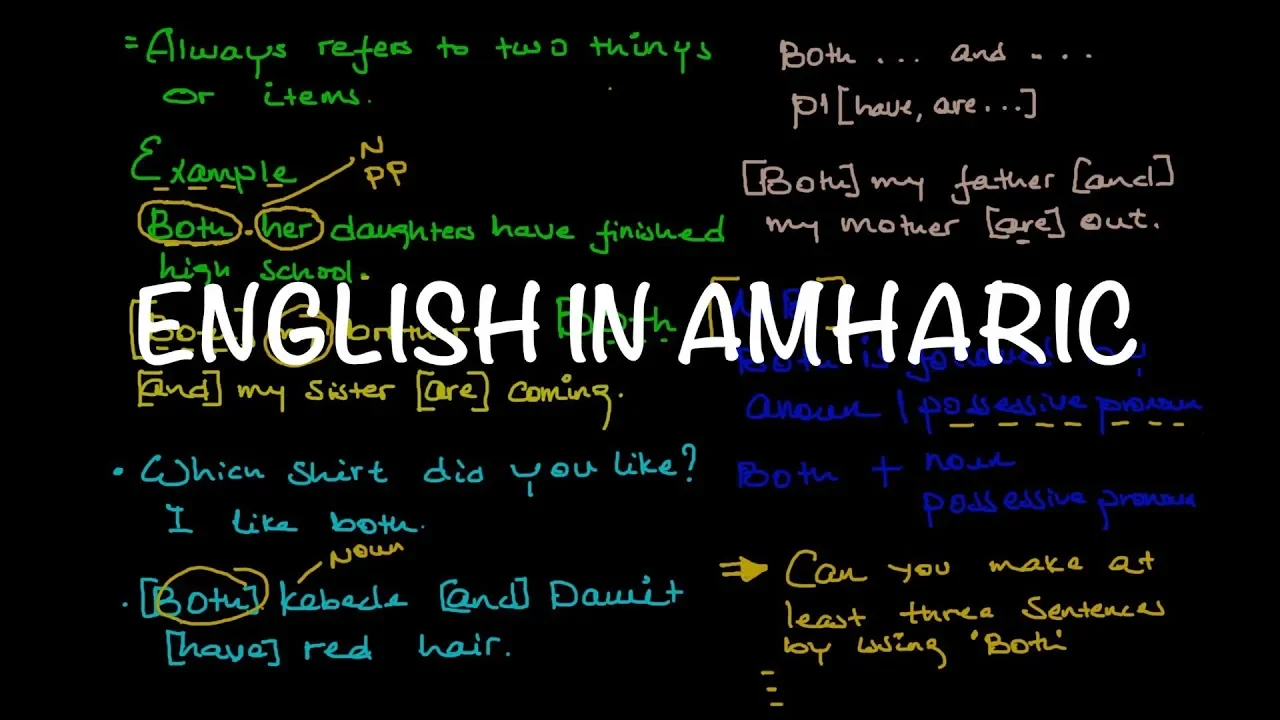 = Always refers to two things
or items.
Example
N
PP
Both her daughters have finished
high school.
[and] my sister [are] coming.
• Which shirt did you like?
I like both.
Noun
• [Both] kebede [and] Dawit
[have] red hair.
ENGLISH IN AMHARIC
Both ... and ....
Pl [have, are ...]
[Both] my father [and]
my mother [are] out.
Both
Both is
anoun / possessive pronoun
Both + noun
possessive pronoun
⇒ Can you make at
least three sentences
by using 'Both'